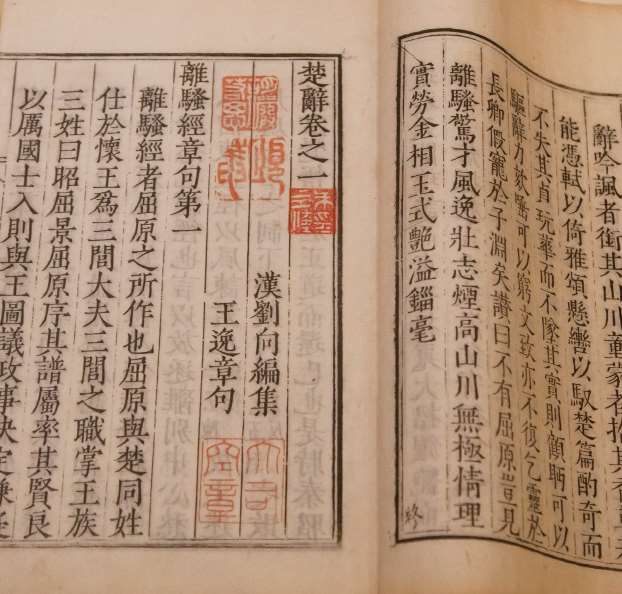 辭吟諷者銜其山川童蒙者拾其香草
能憑軾以倚雅頌懸轡以馭楚篇酌奇而
不失其貞玩華而不墜其實則顧眄可以
驅辭力欬唾可以窮文致亦不復乞靈於
長卿假寵於子淵矣讃曰不有屈原豈見
離騷驚才風逸壯志煙高山川無極情理
實勞金相玉式艷溢錙毫
終
楚辭卷之一
漢劉向編集
王逸章句
離騷經章句第一
離騷經者屈原之所作也屈原與楚同姓
仕於懷王爲三閭大夫三閭之職掌王族
三姓曰昭屈景屈原序其譜屬率其賢良
以厲國士入則與王圖議政事決定嫌疑